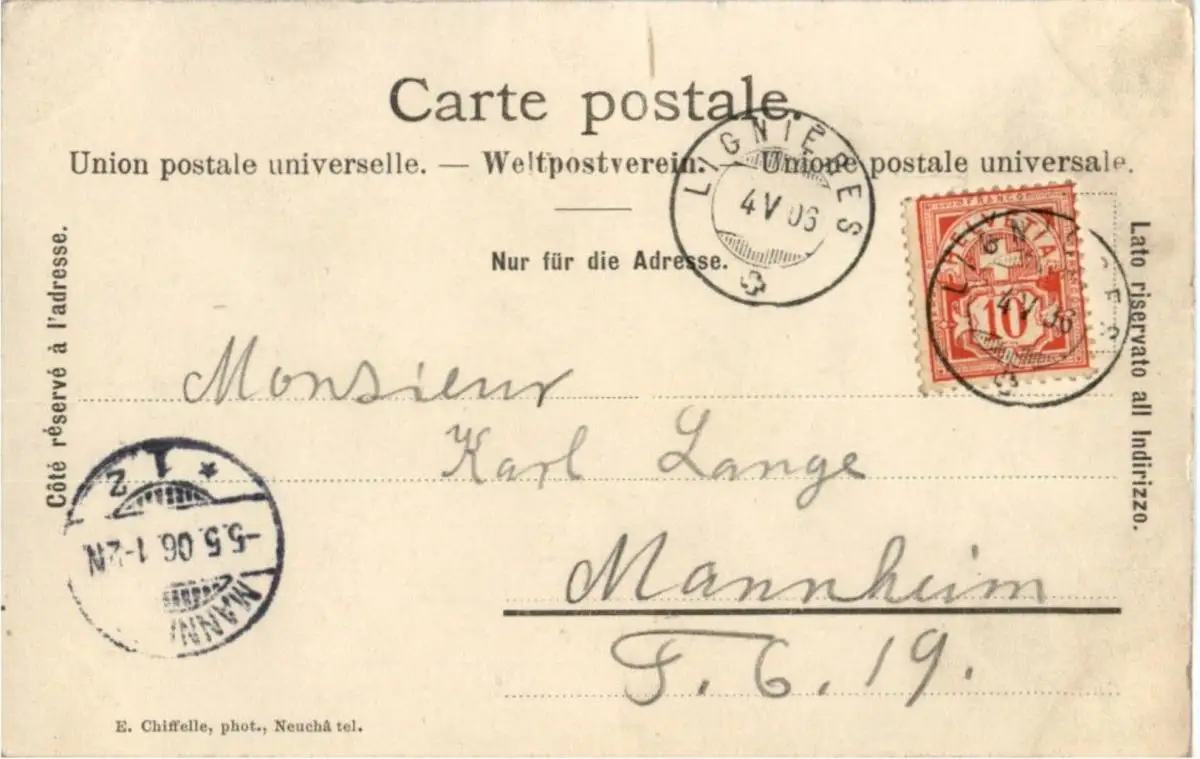 Carte postale.
Union postale universelle. — Weltpostverein. — Unione postale universale.
Nur für die Adresse.
Côté réservé à l'adresse.
Lato riservato all Indirizzo.
LIGNIÈRES
4 V 06
FRANCO
HELVETIA
10
LIGNIÈRES
4 V 06
Monsieur
Karl Lange
Mannheim
F. 6. 19.
* 1 2
-5.5.06.1-2N
MANN
E. Chiffelle, phot., Neuchâtel.